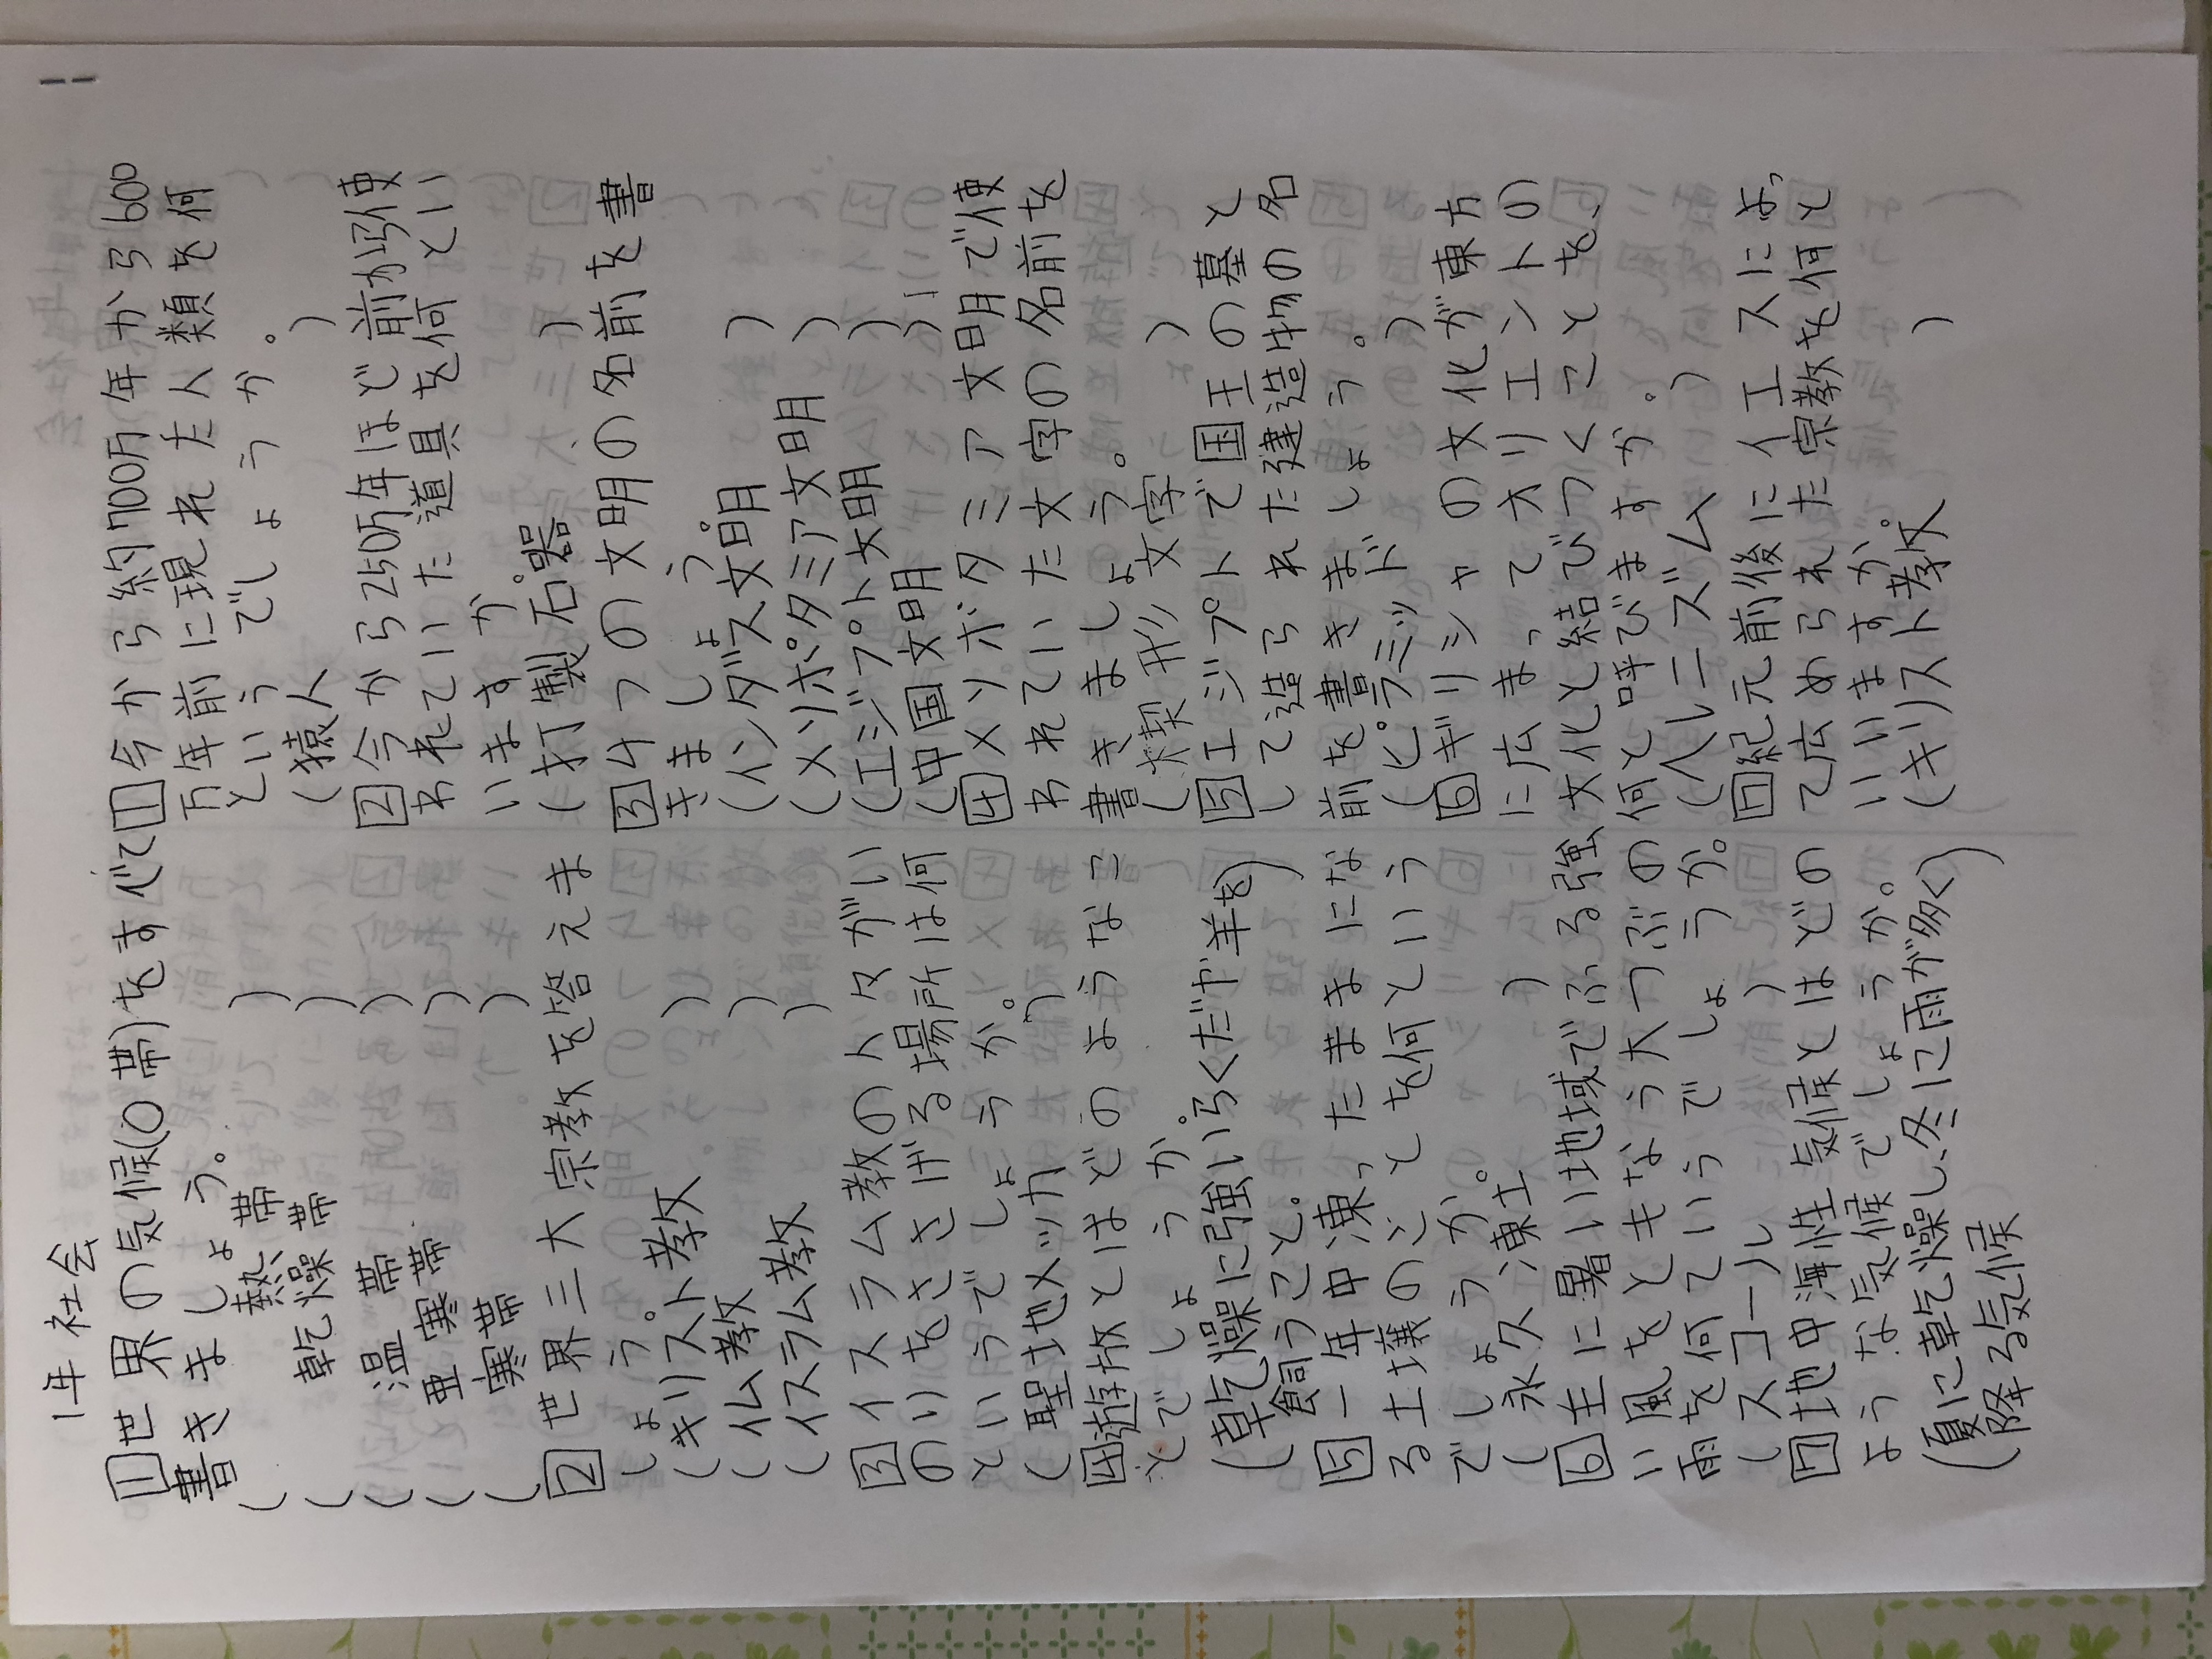 1年 社会
1 世界の気候(〇帯)をすべて
書きましょう。
( 熱帯 )
( 乾燥帯 )
( 温帯 )
( 亜寒帯 )
( 寒帯 )
2 世界三大宗教を答えま
しょう。
(キリスト教 )
(仏教 )
(イスラム教 )
3 イスラム教の人々がい
のりをささげる場所は何
というでしょうか。
(聖地メッカ )
4 遊牧とはどのようなこ
とでしょうか。
(乾燥に強いらくだや羊を
飼うこと。 )
5 一年中凍ったままにな
る土壌のことを何という
でしょうか。
(永久凍土 )
6 主に暑い地域でふる強
い風をともなう大つぶの
雨を何というでしょうか。
(スコール )
7 地中海性気候とはどの
ような気候でしょうか。
(夏に乾燥し、冬に雨が多く
降る気候 )
1 今から約700万年から600
万年前に現れた人類を何
というでしょうか。
(猿人 )
2 今から250万年ほど前から使
われていた道具を何とい
いますか。
(打製石器 )
3 4つの文明の名前を書
きましょう。
(インダス文明 )
(メソポタミア文明 )
(エジプト文明 )
(中国文明 )
4 メソポタミア文明で使
われていた文字の名前を
書きましょう。
(楔形文字 )
5 エジプトで国王の墓と
して造られた建造物の名
前を書きましょう。
(ピラミッド )
6 ギリシャの文化が東方
に広まってオリエントの
文化と結びつくことを、
何と呼びますか。
(ヘレニズム )
7 紀元前後にイエスによっ
て広められた宗教を何と
いいますか。
(キリスト教 )